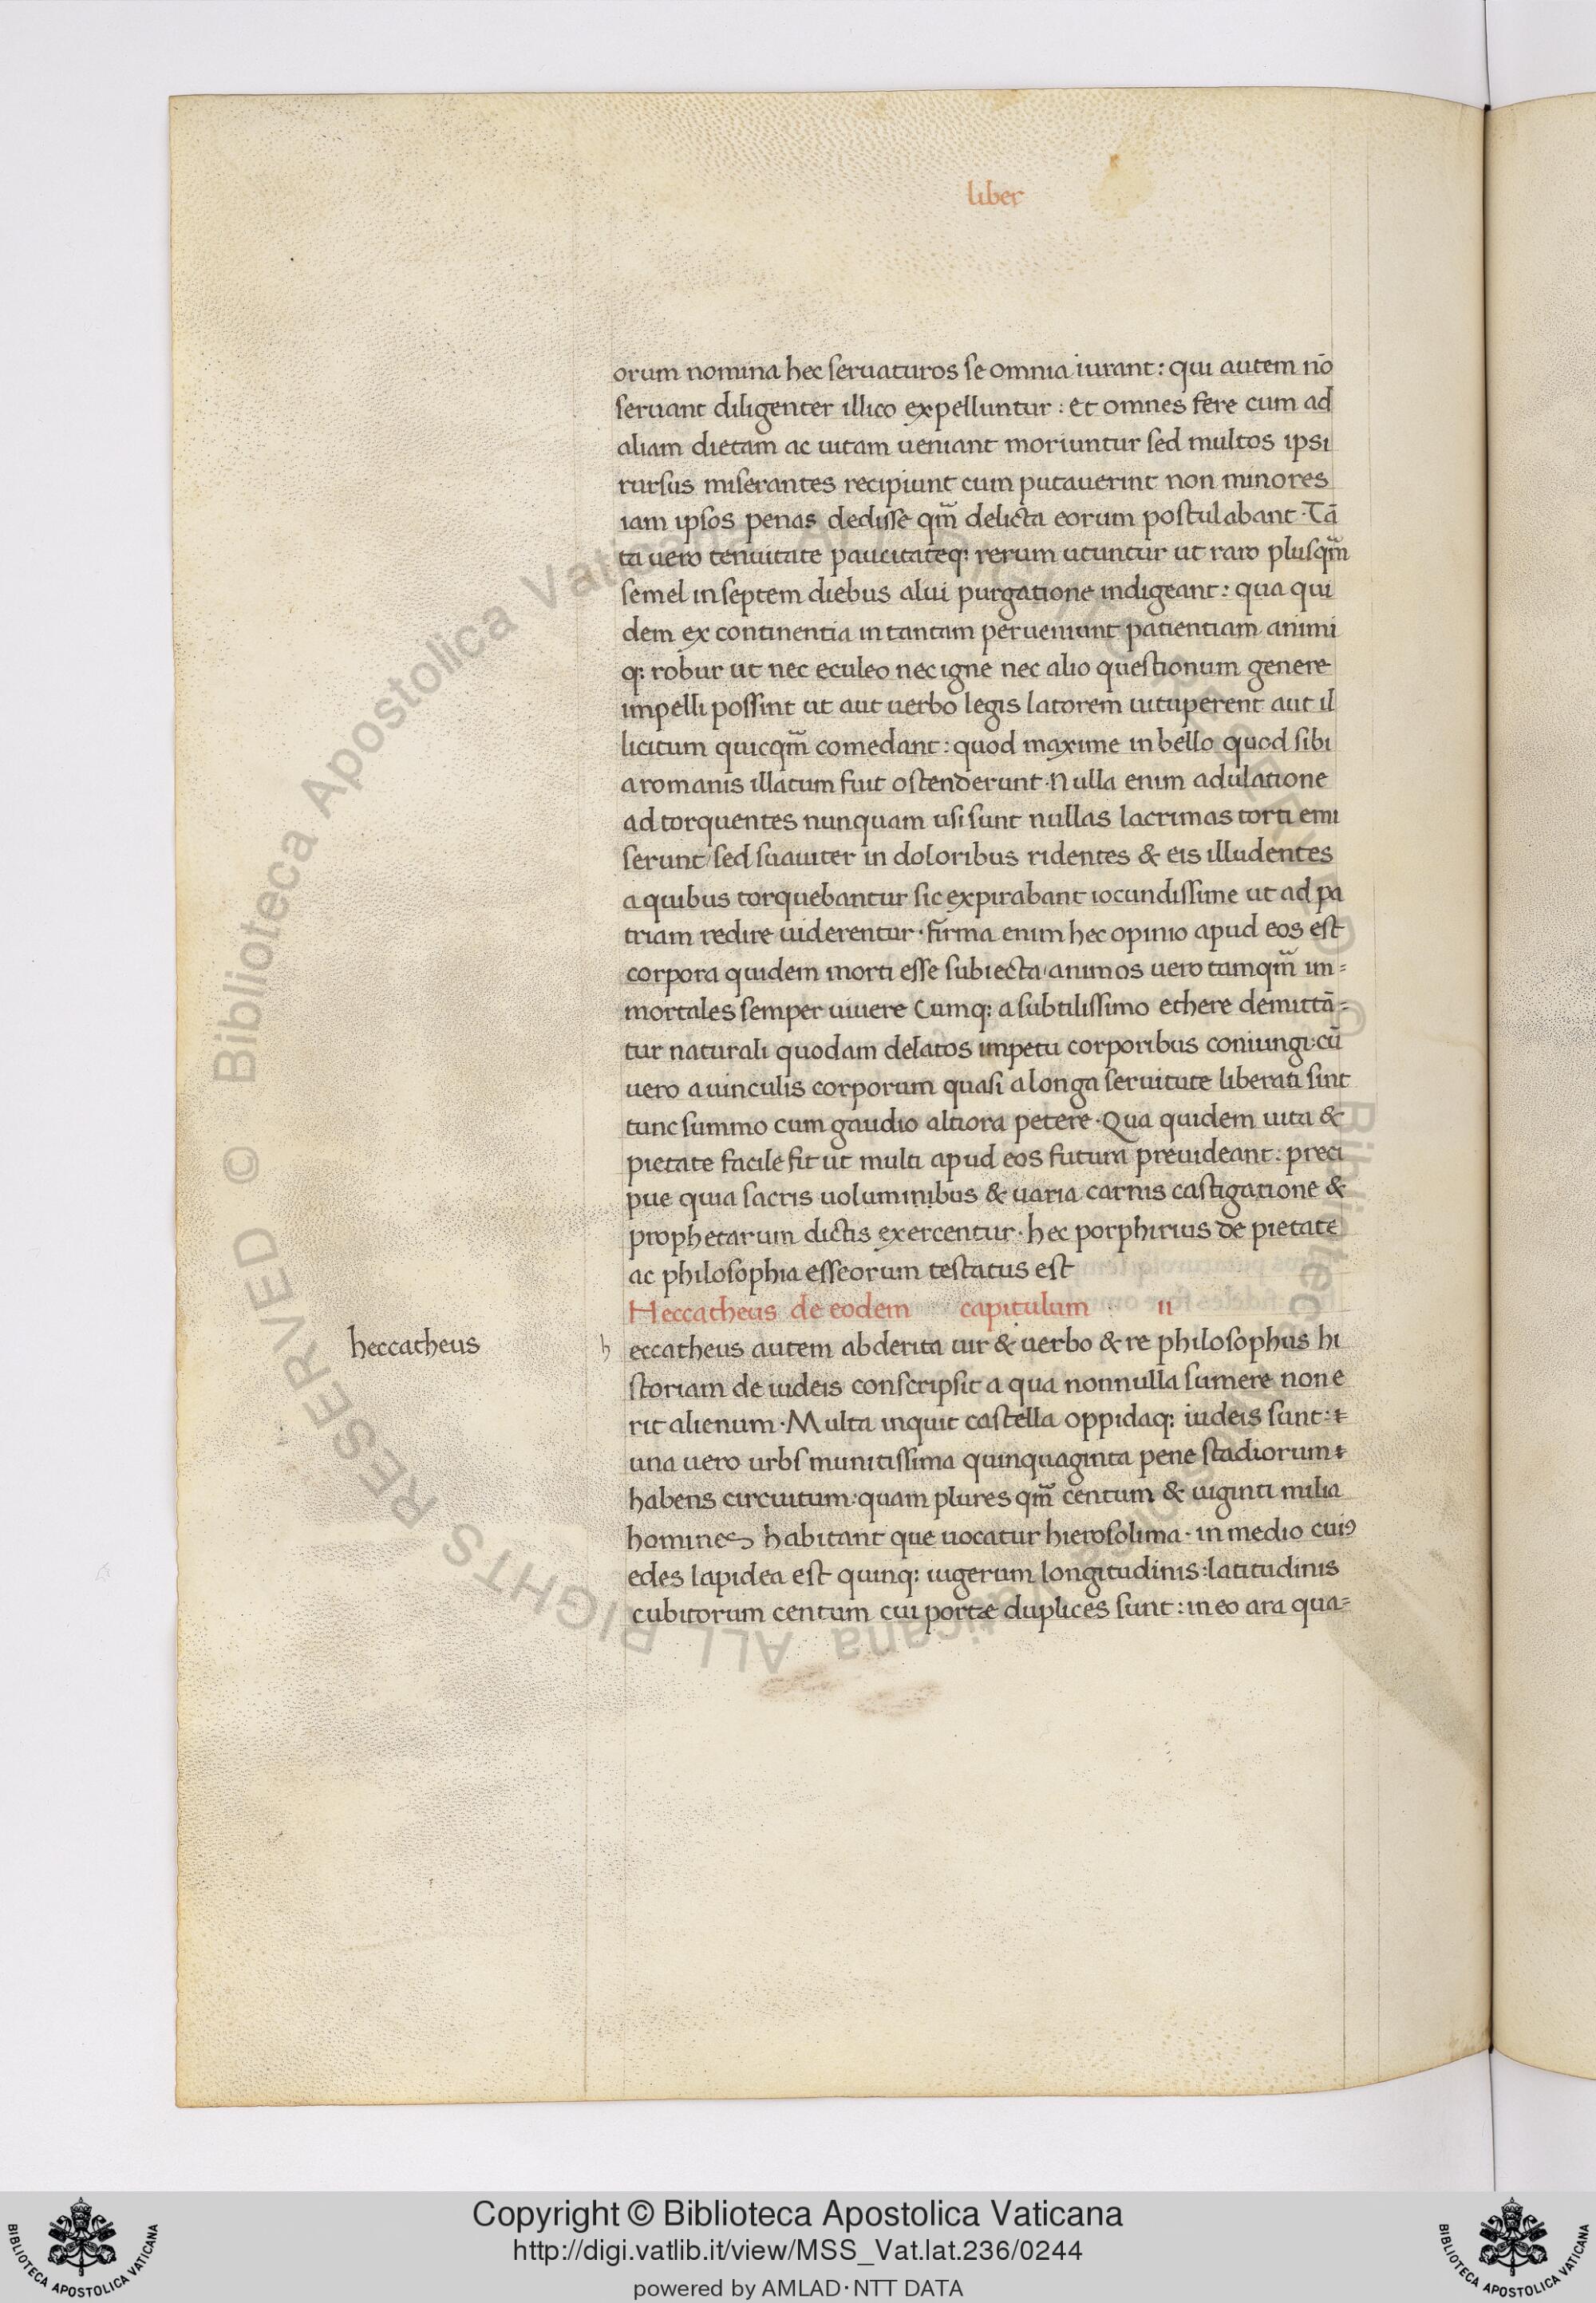 liber
orum nomina hec seruaturos se omnia iurant: qui autem nō
seruant diligenter illico expelluntur: et omnes fere cum ad
aliam dietam ac uitam ueniant moriuntur sed multos ipsi
rursus miserantes recipiunt cum putauerint non minores
iam ipsos penas dedisse qm̄ delicta eorum postulabant· Tā
ta uero tenuitate paucitateq; rerum utuntur ut raro plusqm̄
semel in septem diebus alui purgatione indigeant: qua qui
dem ex continentia in tantam perueniunt patientiam animi
q; robur ut nec eculeo nec igne nec alio questionum genere
impelli possint ut aut uerbo legis latorem uituperent aut il
licitum quicqm̄ comedant: quod maxime in bello quod sibi
a romanis illatum fuit ostenderunt· Nulla enim adulatione
ad torquentes nunquam usi sunt nullas lacrimas torti emi
serunt/ sed suauiter in doloribus ridentes & eis illudentes
a quibus torquebantur sic expirabant iocundissime ut ad pa
triam redire uiderentur· firma enim hec opinio apud eos est
corpora quidem morti esse subiecta/ animos uero tamqm̄ im=
mortales semper uiuere Cumq; a subtilissimo ethere demittā=
tur naturali quodam delatos impetu corporibus coniungi: cū
uero a uinculis corporum quasi a longa seruitute liberati sint
tunc summo cum gaudio altiora petere· Qua quidem uita &
pietate facile fit ut multi apud eos futura preuideant: preci
pue quia sacris uoluminibus & uaria carnis castigatione &
prophetarum dictis exercentur· hec porphirius de pietate
ac philosophia esseorum testatus est
Heccatheus de eodem capitulum · II
heccatheus
h eccatheus autem abderita uir & uerbo & re philosophus hi
storiam de iudeis conscripsit a qua nonnulla sumere non e
rit alienum· Multa inquit castella oppidaq; iudeis sunt:
una uero urbs munitissima quinquaginta pene stadiorum
habens circuitum: quam plures qm̄ centum & uiginti milia
homines habitant que uocatur hierosolima· in medio cuiꝰ
edes lapidea est quinq; iugerum longitudinis: latitudinis
cubitorum centum cui portæ duplices sunt: in eo ara qua=
Copyright © Biblioteca Apostolica Vaticana
http://digi.vatlib.it/view/MSS_Vat.lat.236/0244
powered by AMLAD·NTT DATA